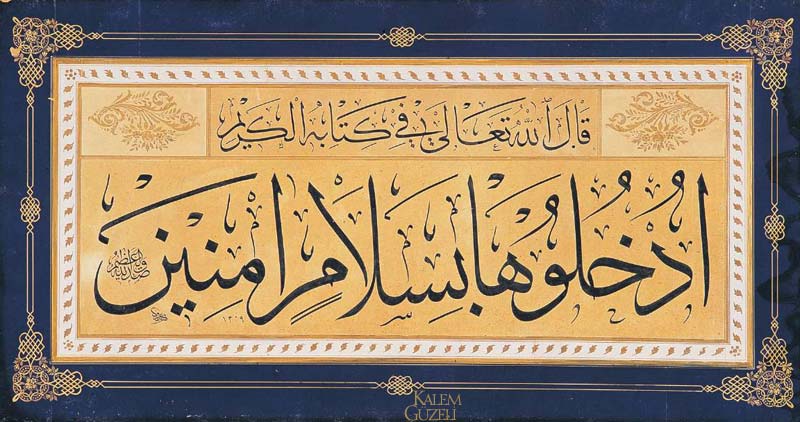 قال الله تعالى في كتابه الكريم
ادخلوها بسلام امنين
صدق الله العظيم
١٣٠٩
KALEM
GÜZELİ